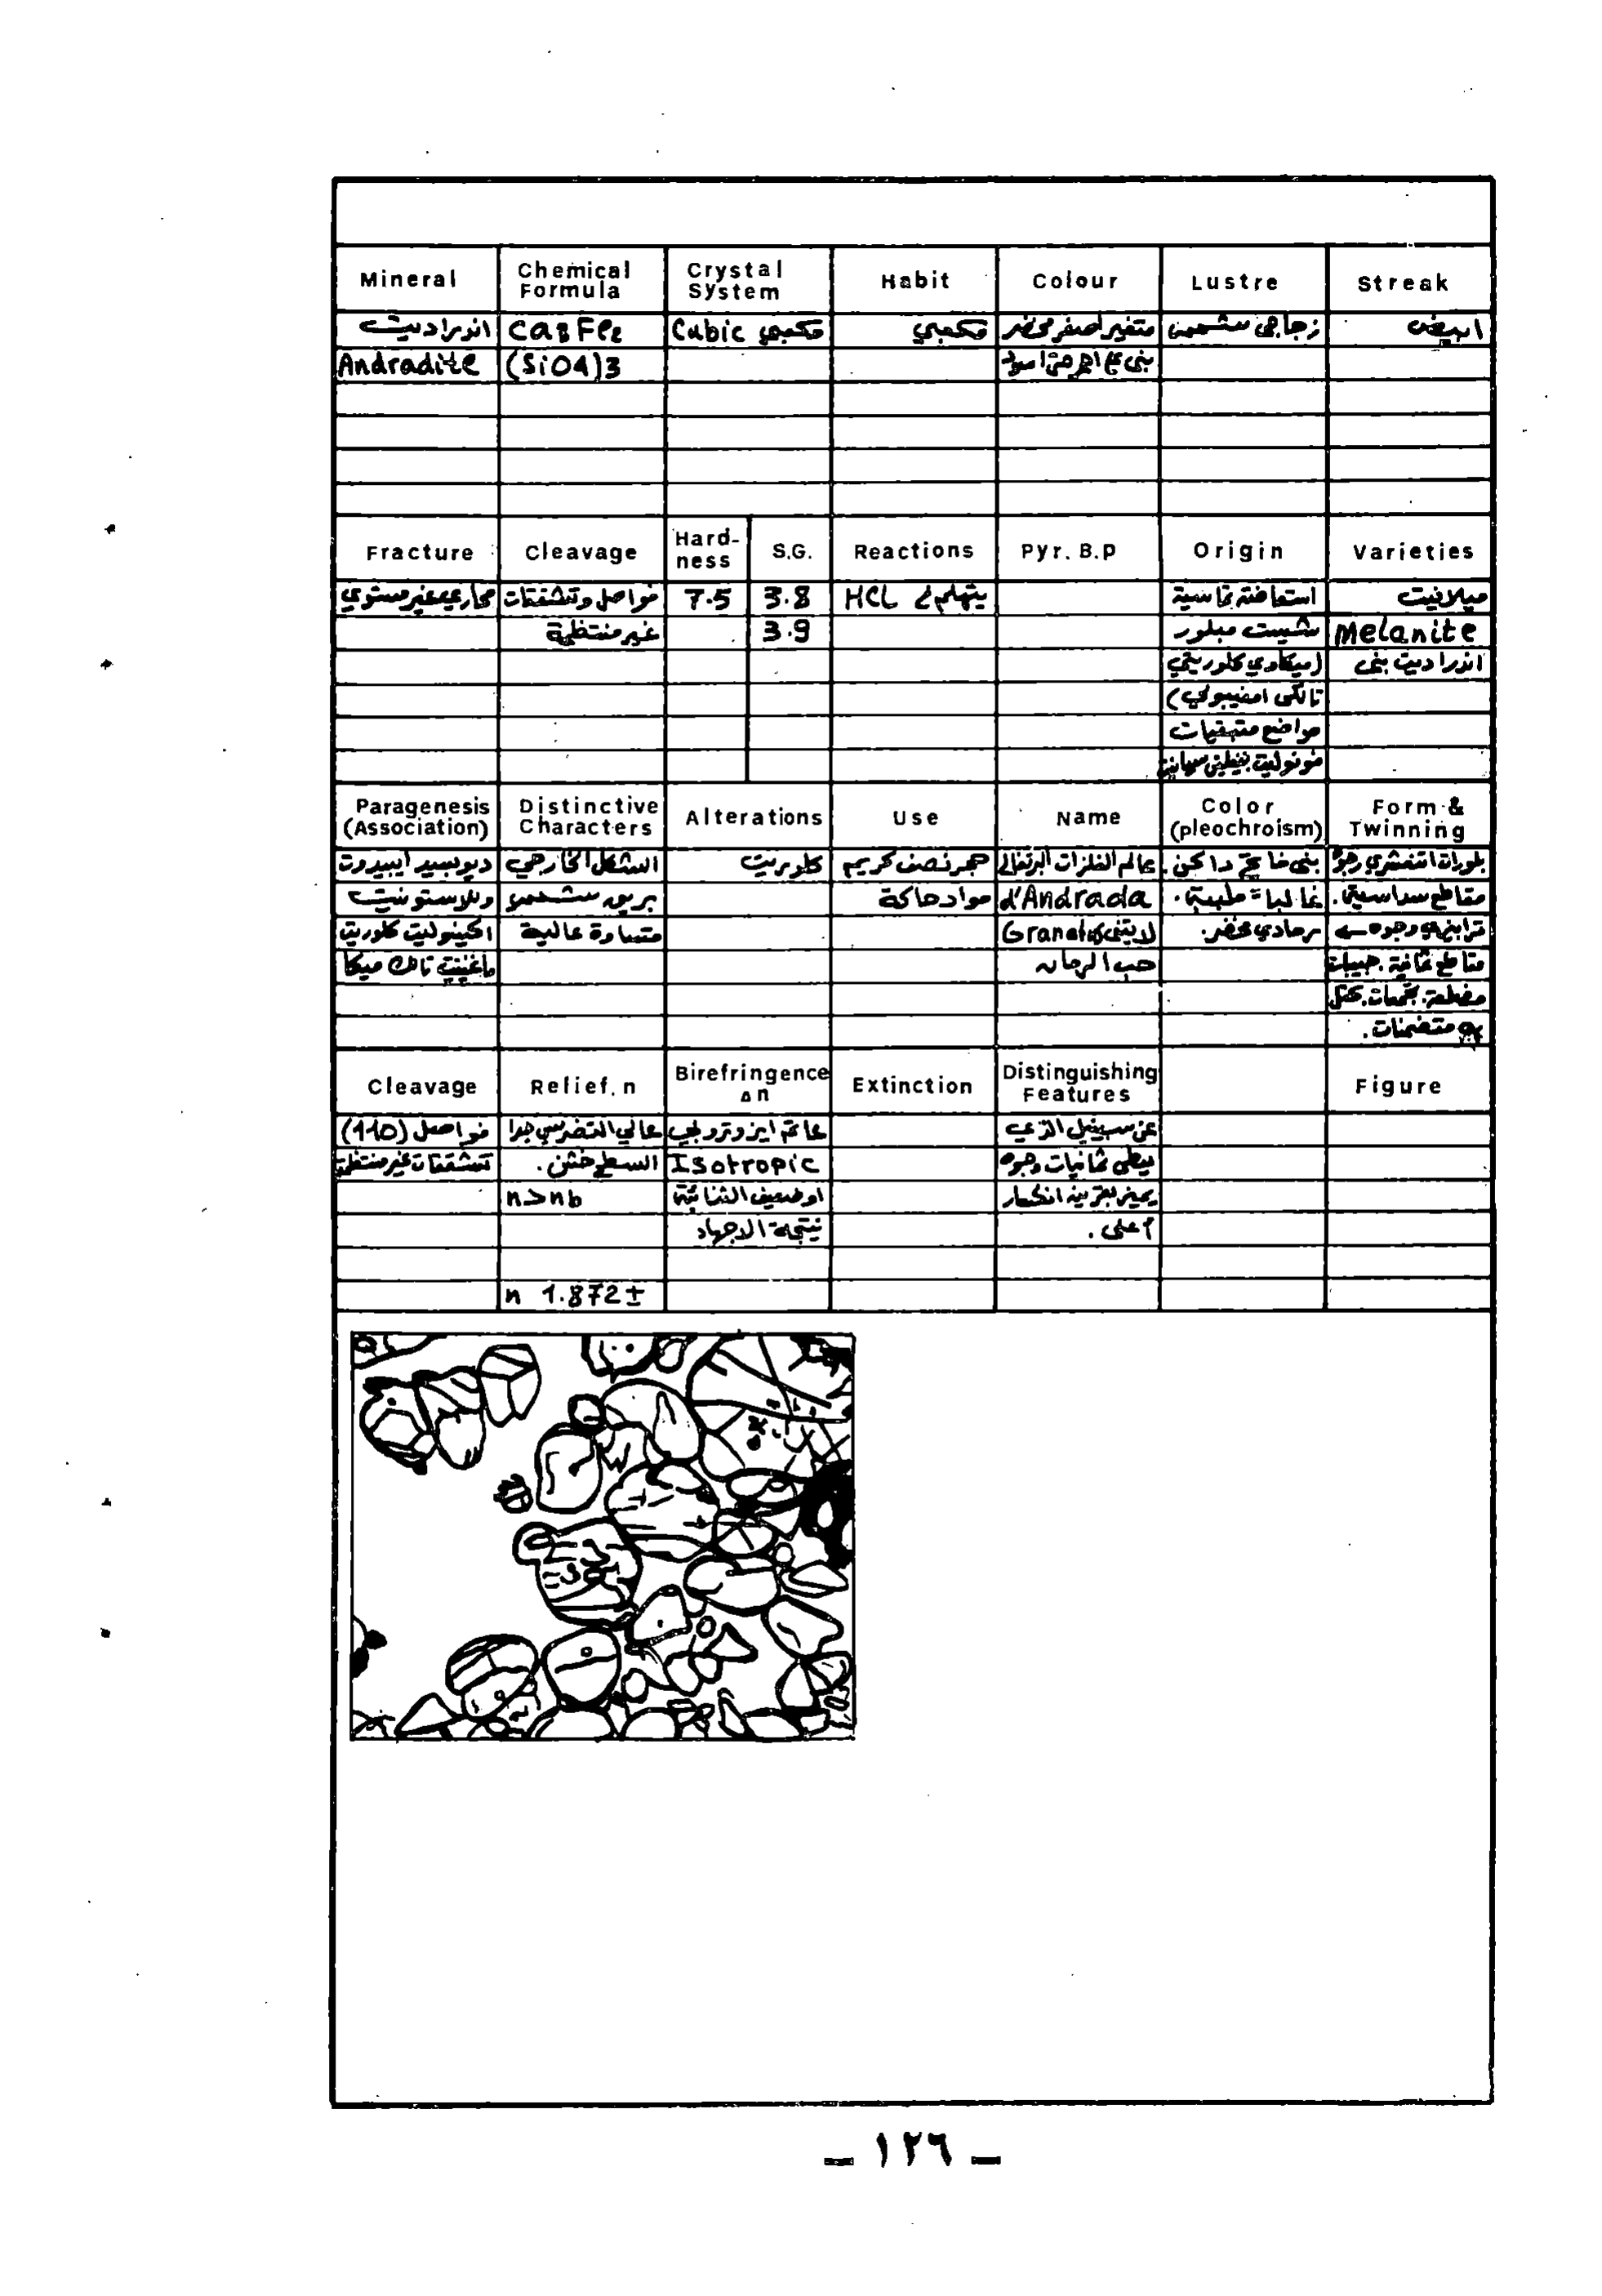 Mineral Chemical Formula Crystal System Habit Colour Lustre Streak
اندراديت Ca3Fe2 Cubic مكعبي مكعبي متغير اصفر مخضر زجاجي شحمي ابيض
Andradite (SiO4)3 بني احمر اسود
Fracture Cleavage Hard-ness S.G. Reactions Pyr. B.P Origin Varieties
محاري غير مستوي فواصل وتشققات 7.5 3.8 HCL يتهلم استحالة تماسية ميلانيت
غير منتظمة 3.9 شيست مبلور Melanite
(ميكاوي كلوريتي اندراديت بني
تالكي امفيبولي)
مواضع متبقيات
فونوليت
Paragenesis (Association) Distinctive Characters Alterations Use Name Color (pleochroism) Form & Twinning
ديوبسيد ايبيدوت الشكل الخارجي كلوريت حجر نصف كريم عالم الفلزات البرتغالي بني داكن. بلورات
وللاستونيت بريق شحمي مواد حاكة d'Andrada غالبا مقاطع سداسية.
كلوريت قساوة عالية Granat لاتيني رمادي مخضر. وجوه
ماغنتيت تالك ميكا حب الرمان مقاطع ثمانية. حبيبات
تجمعات. كتل
متضمنات.
Cleavage Relief. n Birefringence Δn Extinction Distinguishing Features Figure
فواصل (110) عالي التضرس جدا عاتم ايزوتروبي عن سبينيل الذي
تشققات غير منتظمة السطح خشن. Isotropic يعطي ثمانيات وجوه
n>nb او ضعيف الثنائية يميز بقرينة انكسار
نتيجة الاجهاد أعلى.
n 1.872±
ـ ١٢٦ ـ